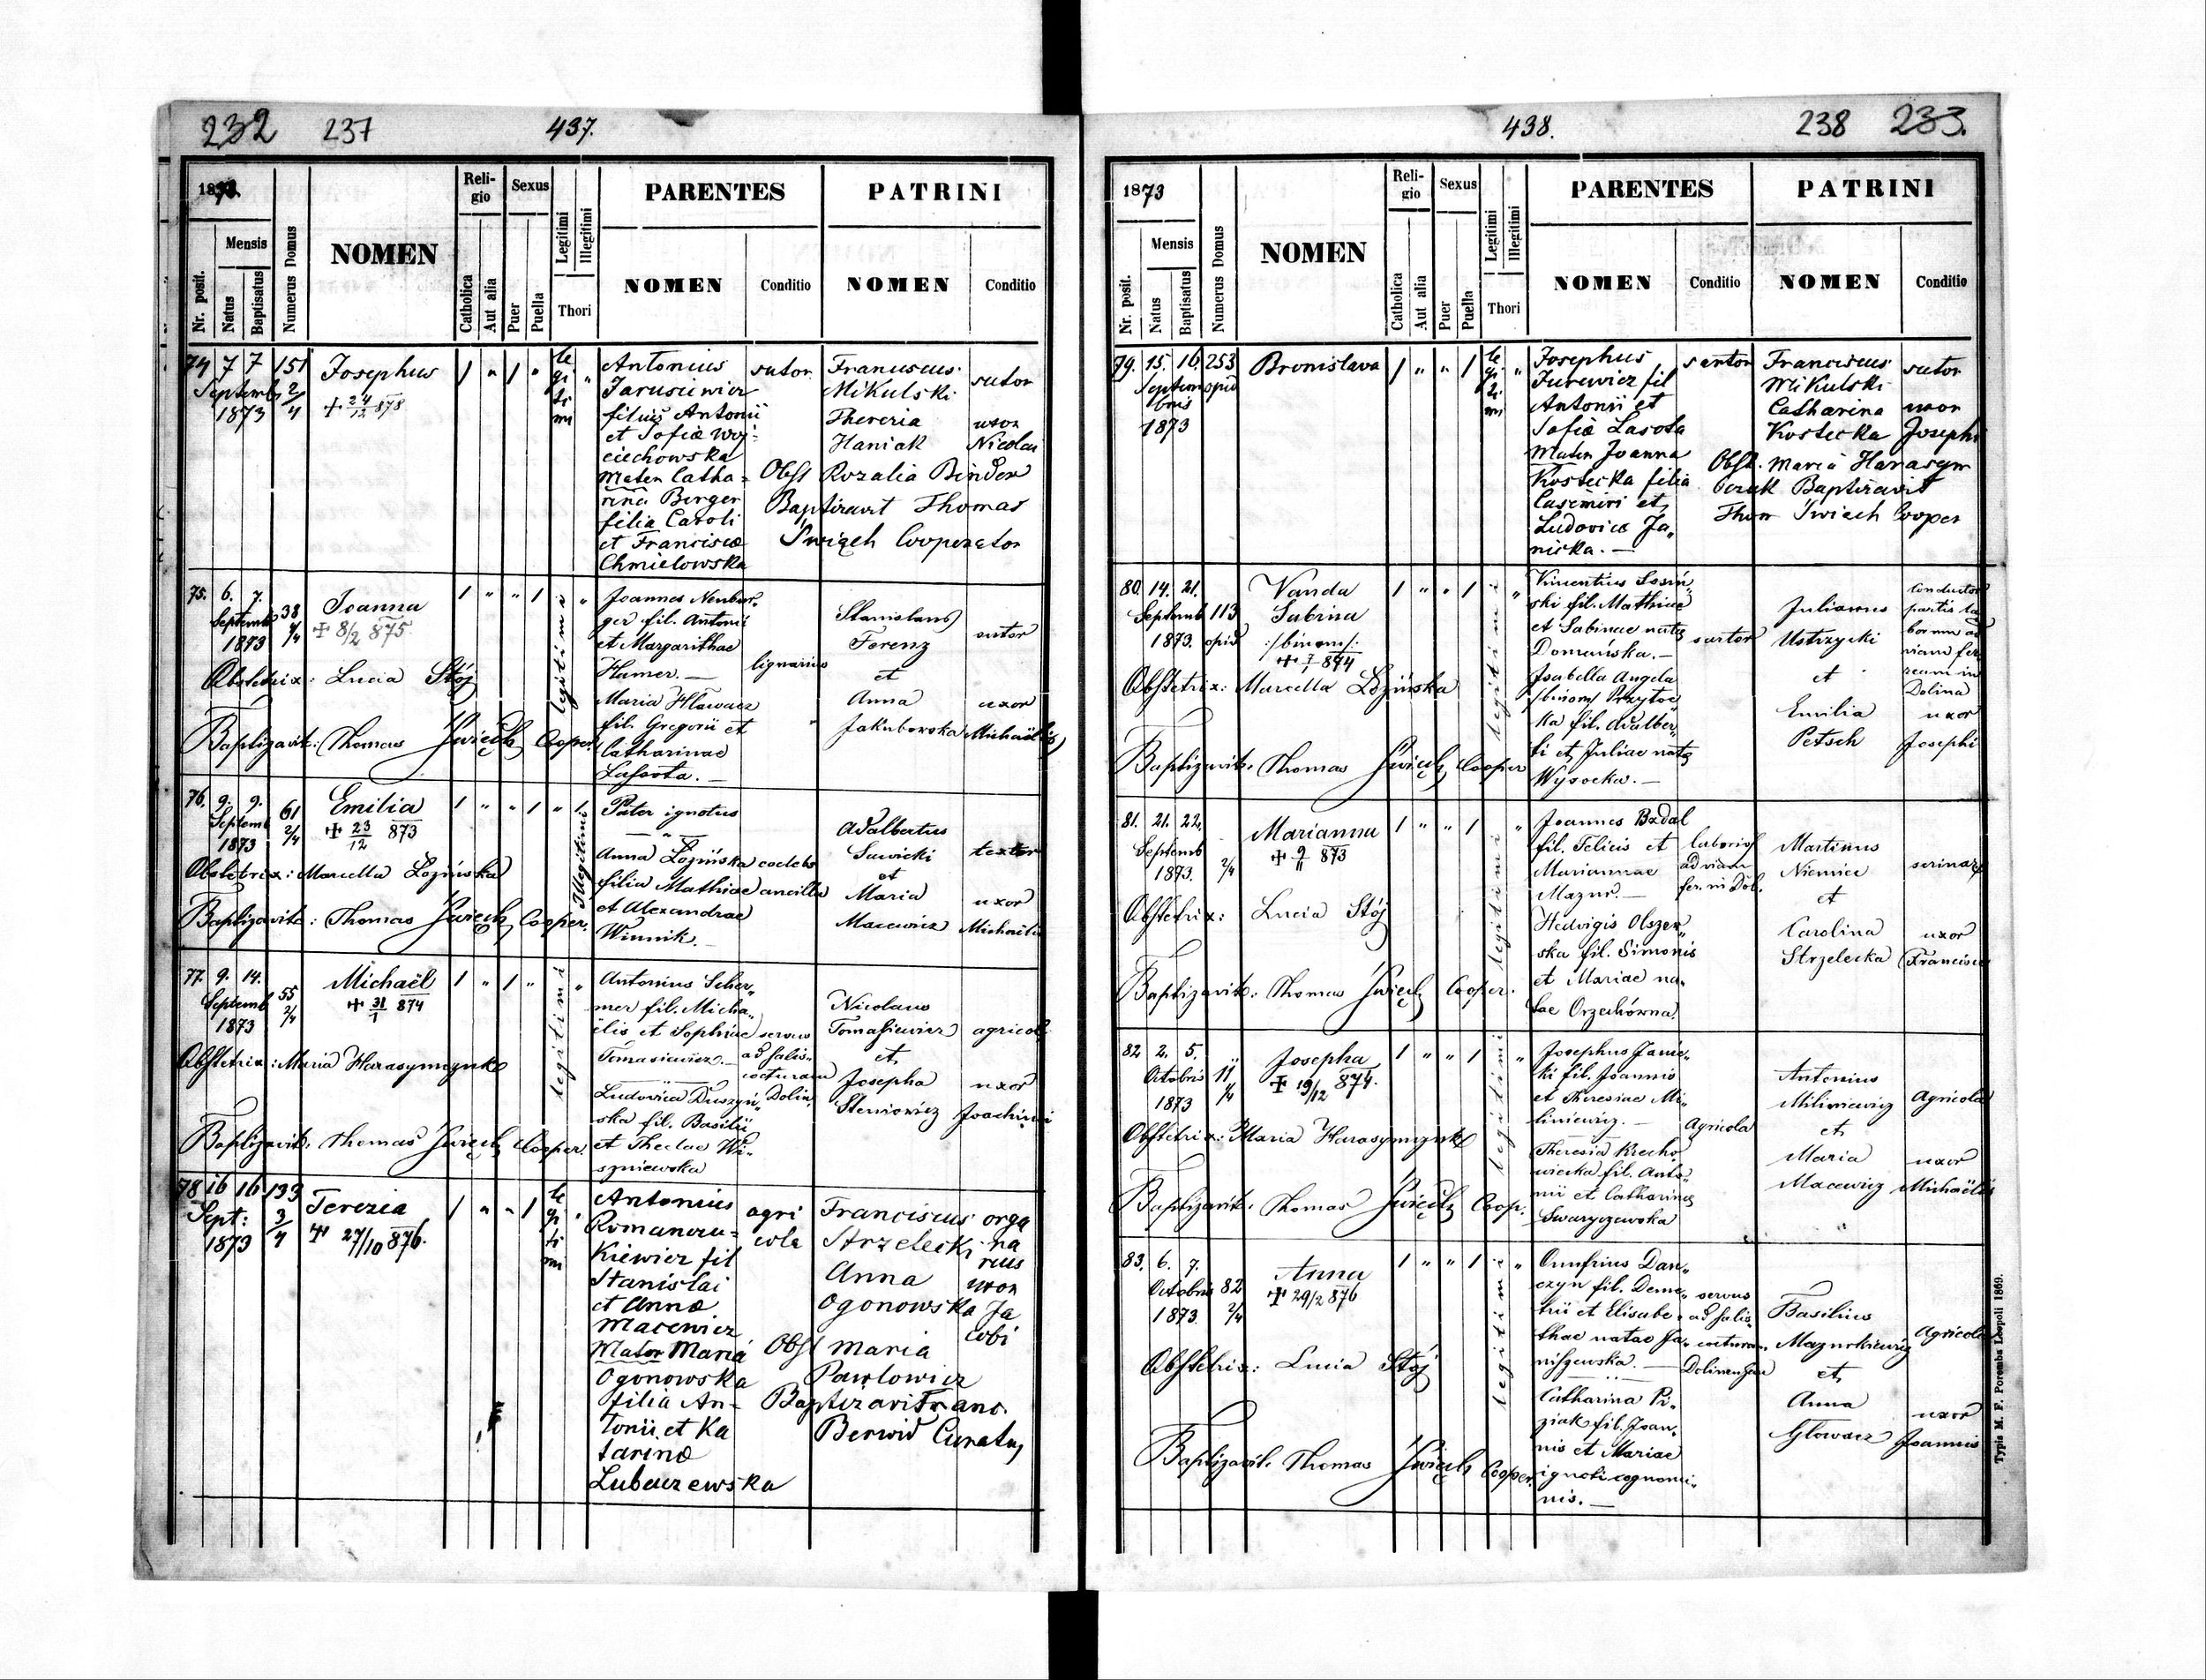 232 237 437.
1873.
Religio
Sexus
Legitimi
Illegitimi
PARENTES
PATRINI
Nr. posit.
Mensis
Natus
Baptisatus
Numerus Domus
NOMEN
Catholica
Aut alia
Puer
Puella
Thori
NOMEN
Conditio
NOMEN
Conditio
74 7 7 151 Josephus 1 " 1 " legitimi "
Septemb 2/4
1873 + 24/12 878
Antonius sutor
Jarusiewicz
filius Antonii
et Sofiæ Woj-
ciechowska
Mater Catha-
rina Berger
filia Caroli
et Francisca
Chmielowska
Franciscus
Mikulski sutor
Thereria uxor
Haniak Nicolai
Obst Rozalia Binder
Baptizavit Thomas
Święch Cooperator
75. 6. 7. 38 Joanna 1 " " 1 legitimi "
Septemb 4/4
1873 + 8/2 875.
Obstetrix: Lucia Stój
Baptizavit: Thomas Święch Cooper.
Joannes Neubur-
ger fil. Antonii
et Margarithae
Hamer. — lignarius
Maria Hławacz
fil. Gregorii et
Catharinae
Lassota. —
Stanislaus
Ferenz sutor
et
Anna uxor
Jakubowska Michaëlis
76. 9. 9. 61 Emilia 1 " " 1 " 1. Illegitimi
Septemb 2/4
1873 + 23/12 873
Obstetrix: Marcella Łozińska
Baptizavit: Thomas Święch Cooper.
Pater ignotus
Anna Łozińska coelebs
filia Mathiae ancilla
et Alexandrae
Winnik. —
Adalbertus
Sawicki textor
et
Maria uxor
Macewicz Michaëlis
77. 9. 14. 55 Michaël 1 " 1 " legitimi "
Septemb 2/4
1873 + 31/1 874
Obstetrix: Maria Harasymczuk
Baptizavit: Thomas Święch Cooper.
Antonius Scher-
mer fil. Micha-
ëlis et Sophiae servus
Tomasiewicz. — ad salis-
cocturam
Ludovica Duszyń- Dolin.
ska fil. Basilii
et Theclae Wi-
szniewska
Nicolaus
Tomasiewicz agricola
et
Josepha uxor
Steniowicz Joachimi
78 16 16 133 Terezia 1 " " 1 legitimi "
Sept: 3/4
1873 + 27/10 876.
Antonius agri
Romanow- cola
Kiewicz fil
Stanislai
et Anna
Macewicz
Mater Maria
Ogonowska
filia An-
tonii et Ka
tarina
Lubaczewska
Franciscus orga
Strzelecki na
rius
Anna uxor
Ogonowska Ja
cobi
Obst Maria
Pawlowicz
Baptizavit Franc.
Berwid Curatus
438. 238 233.
1873
Religio
Sexus
Legitimi
Illegitimi
PARENTES
PATRINI
Nr. posit.
Mensis
Natus
Baptisatus
Numerus Domus
NOMEN
Catholica
Aut alia
Puer
Puella
Thori
NOMEN
Conditio
NOMEN
Conditio
79. 15. 16. 253 Bronislava 1 " " 1 legitimi "
Septem opid
bris
1873
Josephus sartor
Jurewicz fil
Antonii et
Sofiæ Lasota
Mater Joanna
Kostecka filia
Casimiri et
Ludovica Ja-
nicka. —
Franciscus sutor
Mikulski
Catharina uxor
Kostecka Josephi
Obst. Maria Harasym
czuk Baptizavit
Thom Święch Cooper
80. 14. 21. Vanda 1 " " 1 legitimi "
Septemb 113 Sabina
1873. opid /:binom:/
+ 7/1 874
Obstetrix: Marcella Łozińska
Baptizavit: Thomas Święch Cooper
Vincentius Sosiń-
ski fil. Mathiae
et Sabinae natae sartor
Domańska. —
Isabella Angela
/binom/ Przytoc
ka fil. Adalber-
ti et Juliae natae
Wysocka. —
Julianus
Ustrzycki
et
Emilia
Petsch
conductor
partis la
borum ad
viam fer-
ream in
Dolina
uxor
Josephi
81. 21. 22. Marianna 1 " " 1 legitimi "
Septemb
1873. 2/4 + 9/11 873
Obstetrix: Lucia Stój
Baptizavit: Thomas Święch Cooper.
Joannes Bzdal
fil. Felicis et laborios
Mariannae ad viam
Mazur. — fer. in Dol.
Hedvigis Olszew-
ska fil. Simonis
et Mariae na-
tae Orzechówna.
Martinus
Niemiec
et
Carolina uxor
Strzelecka Francisci
82 2. 5. 11 Josepha 1 " " 1 legitimi "
Octobris 4/4
1873 + 19/12 874.
Obstetrix: Maria Harasymczuk
Baptizavit: Thomas Święch Coop.
Josephus Janic-
ki fil. Joannis
et Theresiae Mi-
liniewicz. — Agricola
Theresia Krecho
wiecka fil. Anto-
nii et Catharinae
Swaryczewska
Antonius
Miliniewicz Agricola
et
Maria uxor
Macewicz Michaëlis
83. 6. 7. Anna 1 " " 1 legitimi "
Octobris 82
1873 2/4 + 29/2 876
Obstetrix: Lucia Stój
Baptizavit: Thomas Święch Cooper.
Onufrius Dan-
czyn fil. Deme- servus
trii et Elisabe- ad salis-
thae natae Ja- cocturam
niszewska. — Dolinensem
Catharina Pi-
ziak fil. Joan-
nis et Mariae
ignoti cognomi-
nis. —
Basilius
Mazurkiewicz Agricola
et
Anna uxor
Głowacz Joannis
Typis M. F. Poremba Leopoli 1869.